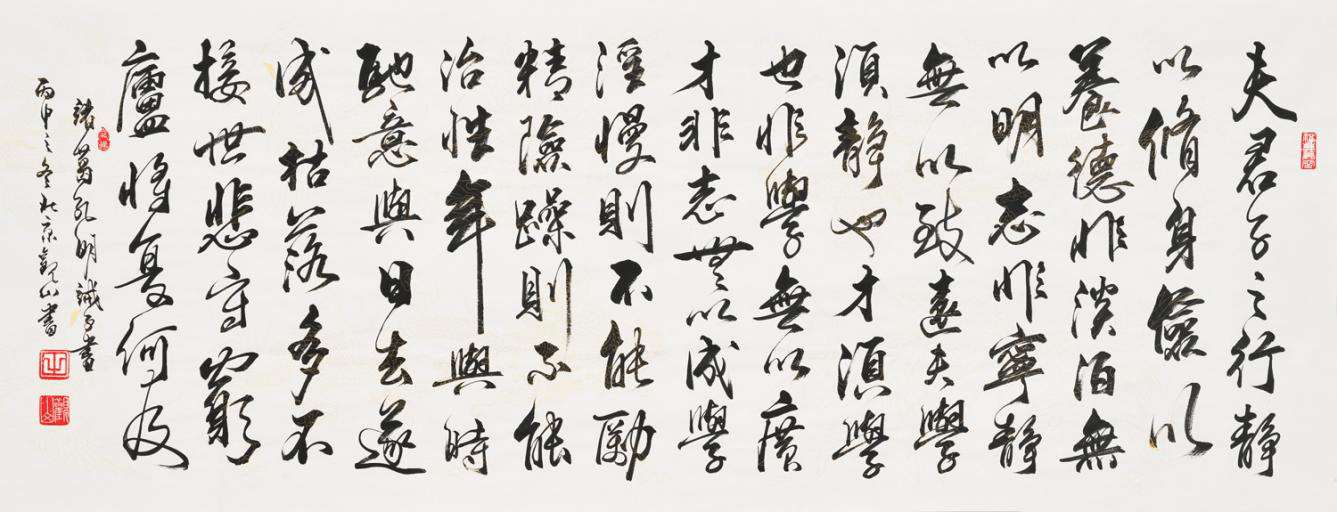 夫君子之行靜
以脩身儉以
養德非淡泊無
以明志非寧靜
無以致遠夫學
須靜也才須學
也非學無以廣
才非志無以成學
淫慢則不能勵
精險躁則不能
治性年與時
馳意與日去遂
成枯落多不
接世悲守窮
廬將复何及
諸葛孔明誡子書
丙申之冬北京觀山書